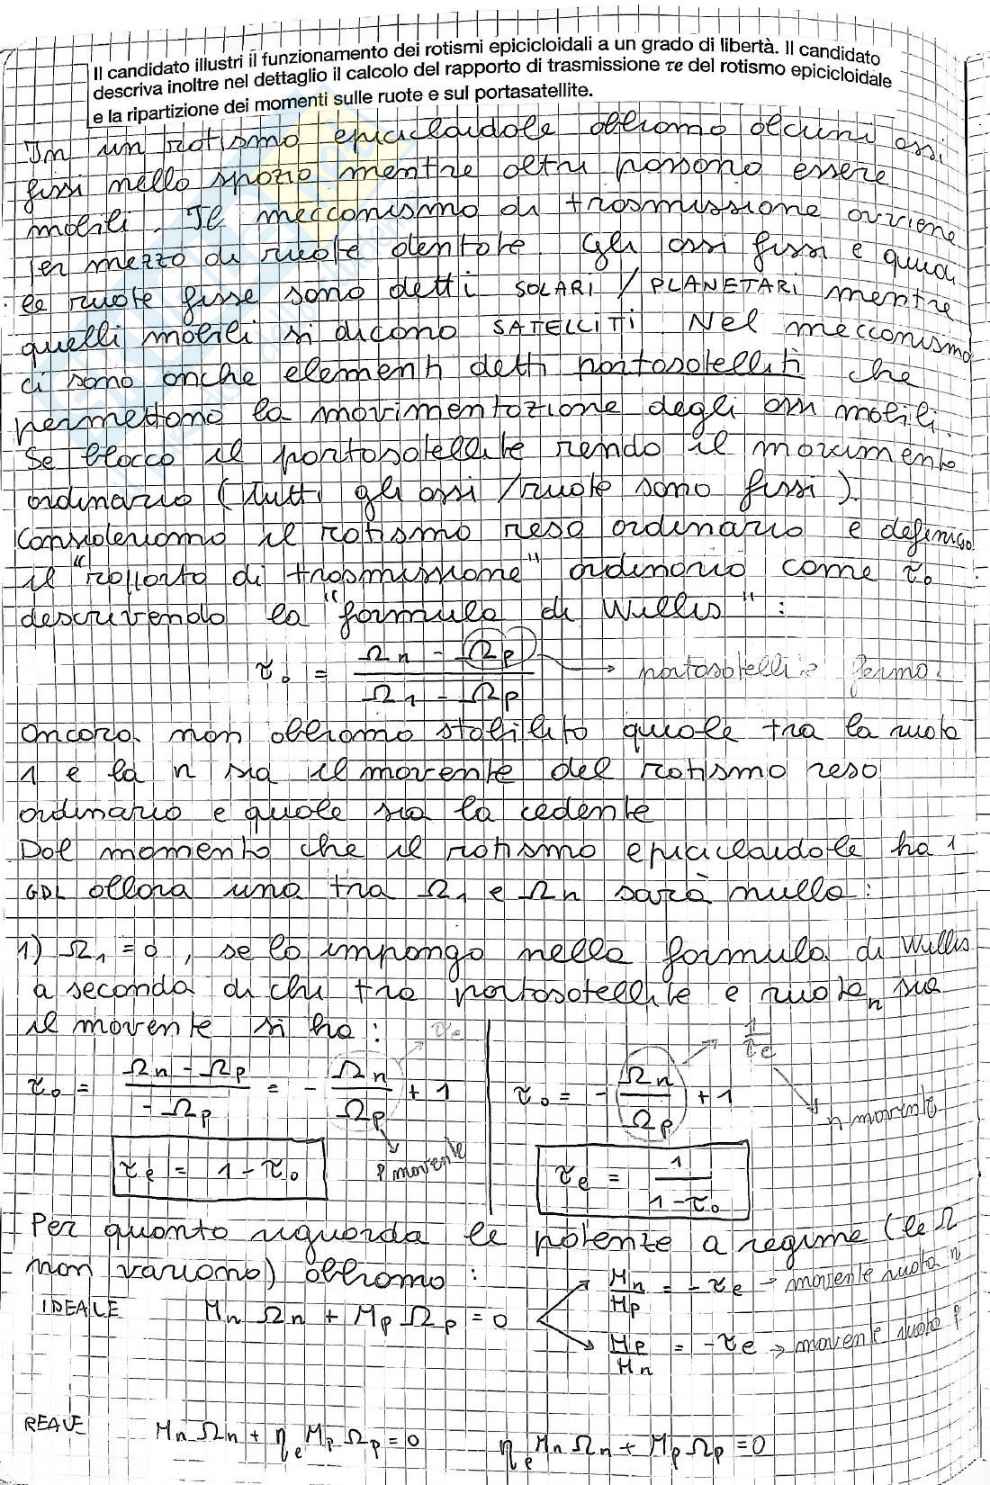 Il candidato illustri il funzionamento dei rotismi epicicloidali a un grado di libertà. Il candidato
descriva inoltre nel dettaglio il calcolo del rapporto di trasmissione τe del rotismo epicicloidale
e la ripartizione dei momenti sulle ruote e sul portasatellite.
In un rotismo epicicloidale abbiamo alcuni assi
fissi nello spazio mentre altri possono essere
mobili. Il meccanismo di trasmissione avviene
per mezzo di ruote dentate. Gli assi fissi e quindi
le ruote fisse sono detti SOLARI / PLANETARI mentre
quelli mobili si dicono SATELLITI. Nel meccanismo
ci sono anche elementi detti portasatelliti che
permettono la movimentazione degli assi mobili.
Se blocco il portasatellite rendo il movimento
ordinario (tutti gli assi / ruote sono fissi).
Consideriamo il rotismo reso ordinario e definisco
il "rapporto di trasmissione" ordinario come τ₀
descrivendo la "formula di Willis":
τ₀ = (Ωn - Ωp) / (Ω1 - Ωp) → portasatellite fermo.
Ancora non abbiamo stabilito quale tra la ruota
1 e la n sia il movente del rotismo reso
ordinario e quale sia la cedente
Dal momento che il rotismo epicicloidale ha 1
GDL allora una tra Ω1 e Ωn sarà nulla:
1) Ω1 = 0, se lo impongo nella formula di Willis
a seconda di chi tra portasatellite e ruota n sia
il movente si ha:
τe
τ₀ = (Ωn - Ωp) / (-Ωp) = - Ωn/Ωp + 1
p movente
τe = 1 - τ₀
1/τe
τ₀ = - (Ωn/Ωp) + 1
n movente
τe = 1 / (1 - τ₀)
Per quanto riguarda le potenze a regime (le Ω
non variano) abbiamo:
IDEALE Mn Ωn + Mp Ωp = 0
Mn/Mp = -τe → movente ruota n
Mp/Mn = -τe → movente ruota p
REALE Mn Ωn + ηe Mp Ωp = 0 ηe Mn Ωn + Mp Ωp = 0